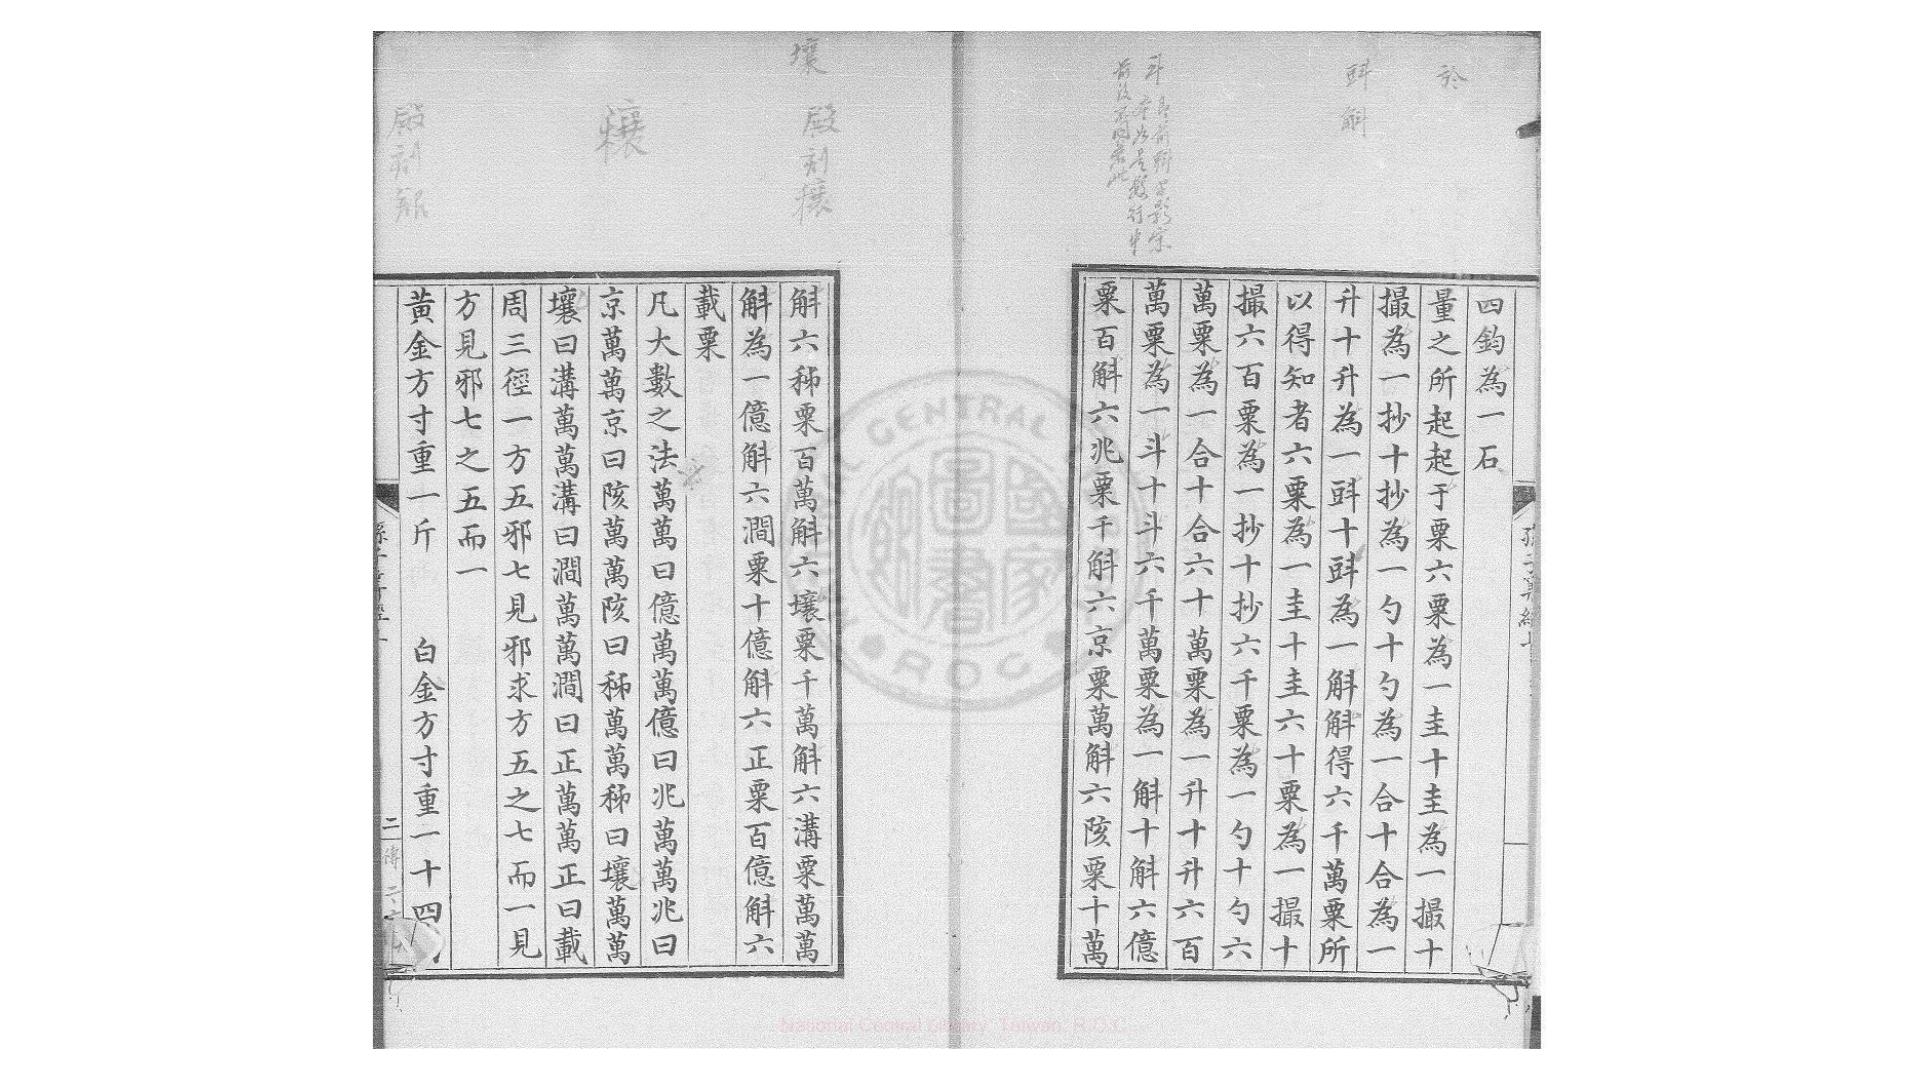 於
㪷 斛
四鈞為一石
量之所起起于粟六粟為一圭十圭為一撮十
撮為一抄十抄為一勺十勺為一合十合為一
升十升為一㪷十㪷為一斛斛得六千萬粟所
以得知者六粟為一圭十圭六十粟為一撮十
撮六百粟為一抄十抄六千粟為一勺十勺六
萬粟為一合十合六十萬粟為一升十升六百
萬粟為一斗十斗六千萬粟為一斛十斛六億
粟百斛六兆粟千斛六京粟萬斛六陔粟十萬
壤
殿刻穰
穰
殿刻
斛六秭粟百萬斛六壤粟千萬斛六溝粟萬萬
斛為一億斛六澗粟十億斛六正粟百億斛六
載粟
凡大數之法萬萬曰億萬萬億曰兆萬萬兆曰
京萬萬京曰陔萬萬陔曰秭萬萬秭曰壤萬萬
壤曰溝萬萬溝曰澗萬萬澗曰正萬萬正曰載
周三徑一方五邪七見邪求方五之七而一見
方見邪七之五而一
黃金方寸重一斤 白金方寸重一十四
二
國家圖書館
CENTRAL
ROC
National Central Library, Taiwan, R.O.C